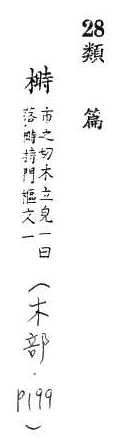 28 類篇
榯 市之切木立皃一曰
落時持門樞文一
（木部．P199）